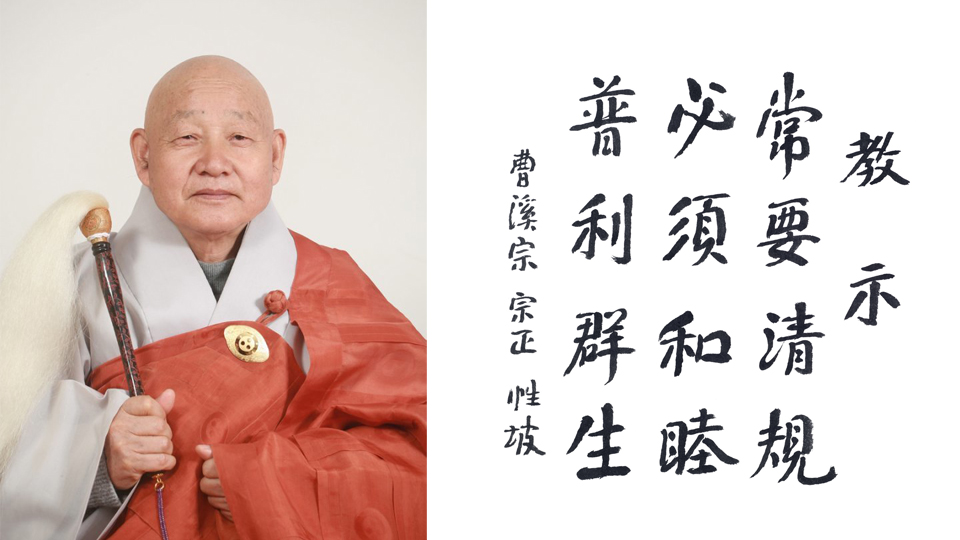 教示
常要清規
必須和睦
普利群生
曹溪宗 宗正 性坡